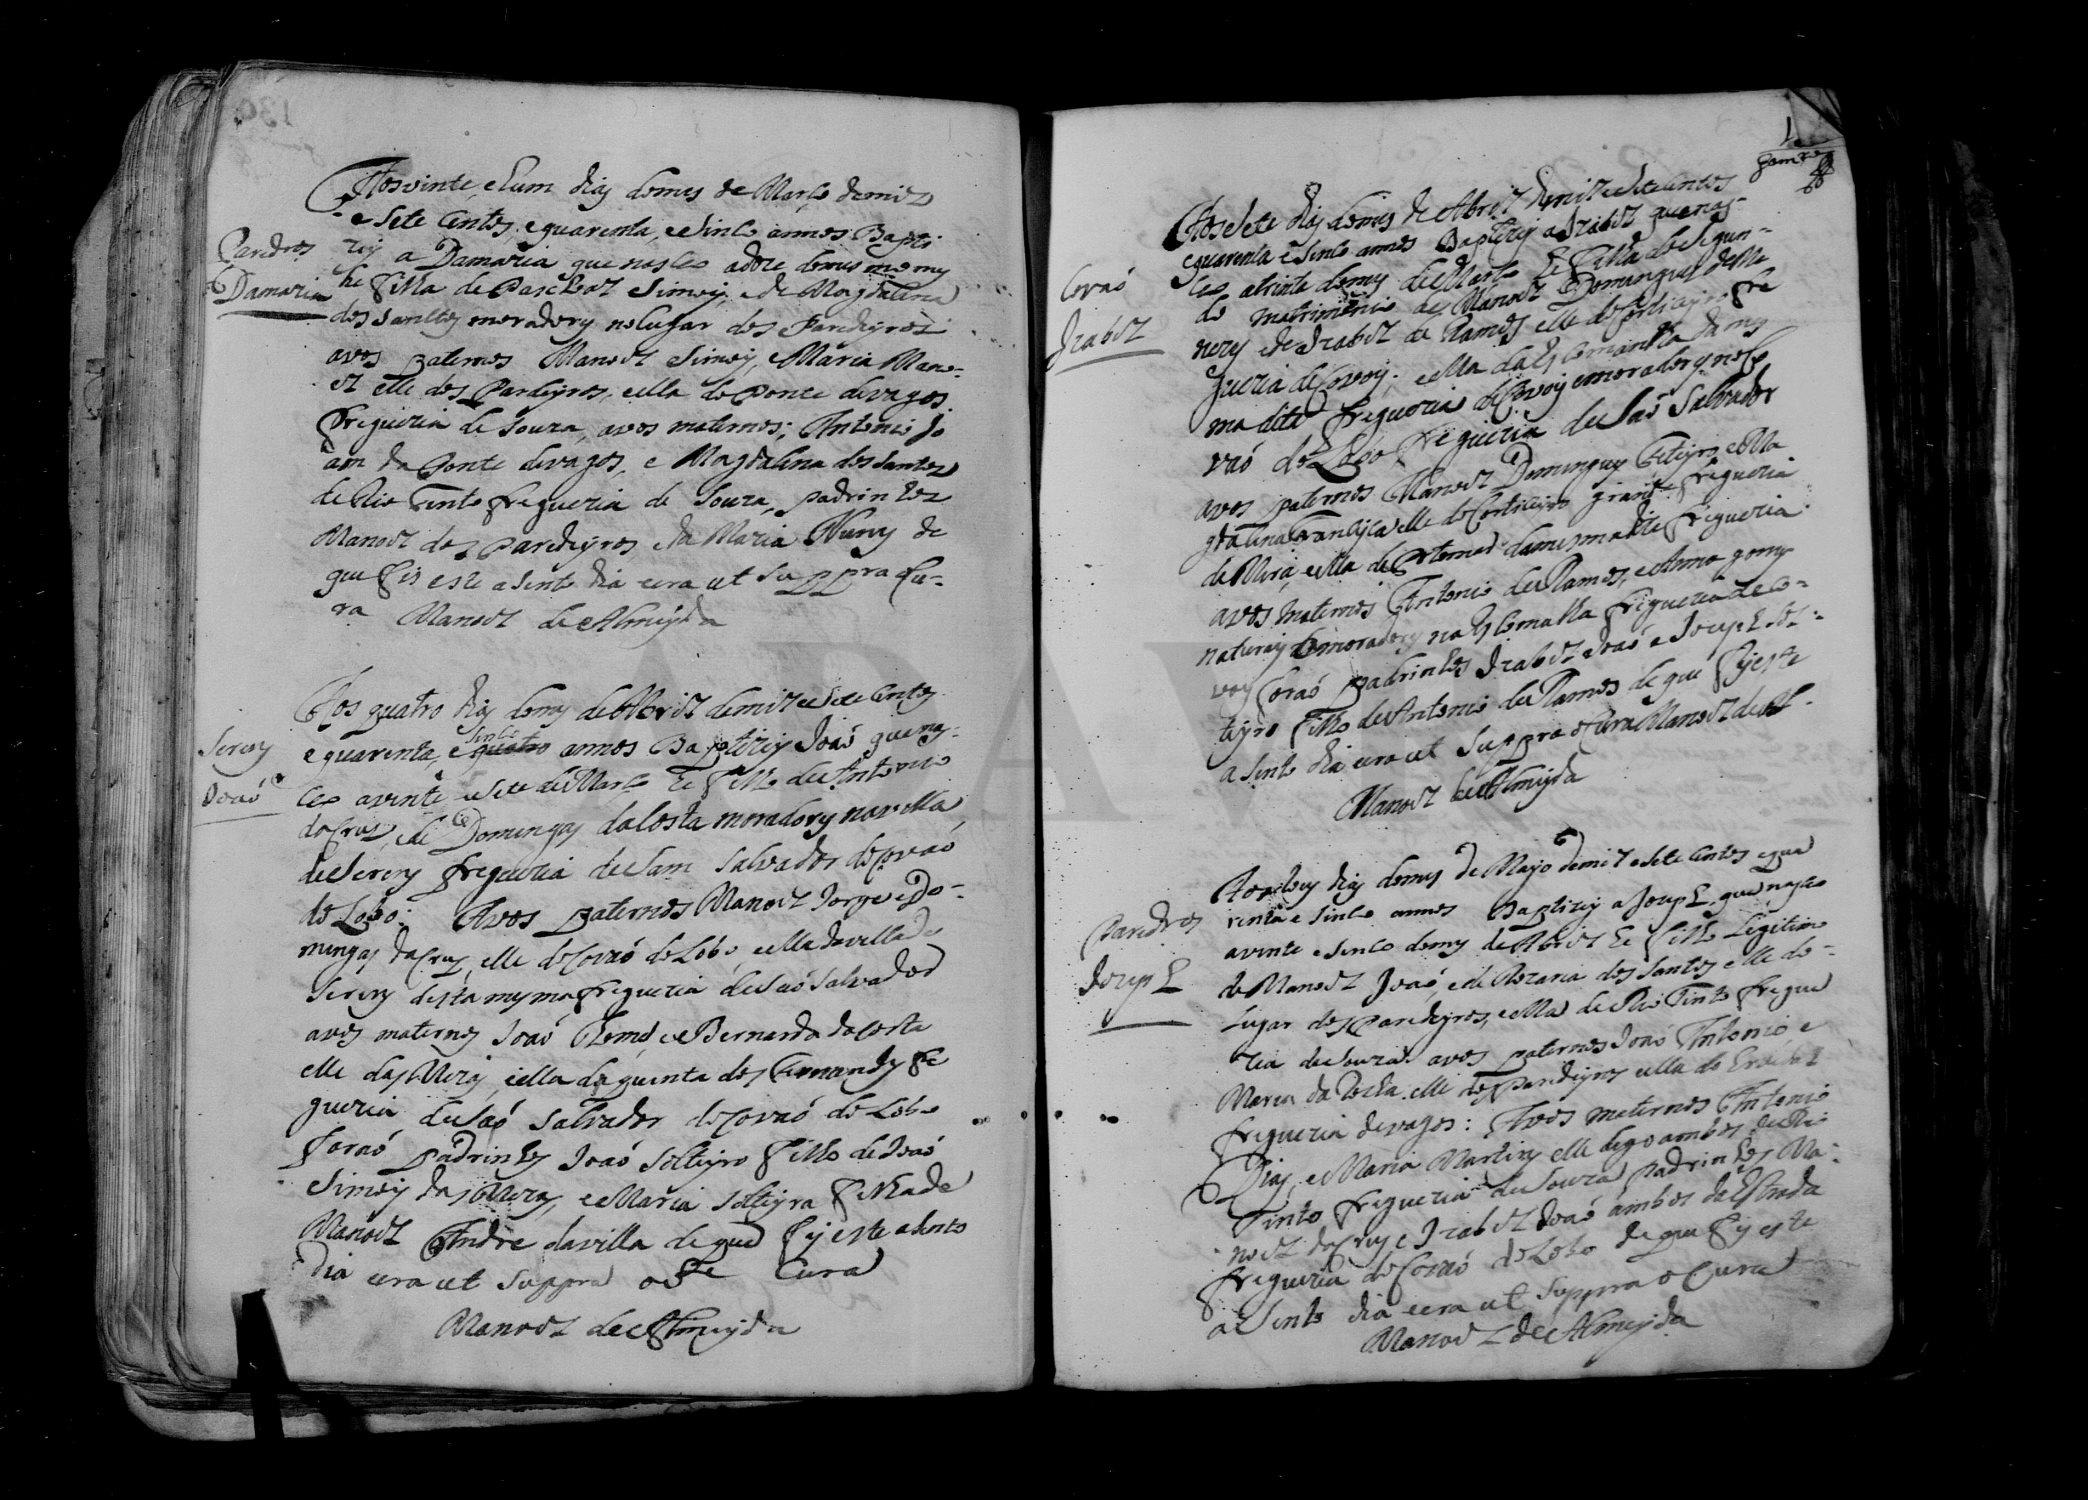 Aos vinte, e hum dias do mes de Março de mil
e sete centos, e quarenta, e sinco annos Bapti
Paredros
zey a Damaria que nasceo a doze do mes mesmo
Damaria
he filha de Paschoal Simois, e de Magdalena
dos Sanctos moradores no lugar dos Pardeyros
avos paternos Manoel Simois, e Maria Mano-
el elle dos Pardeyros, e ella da Ponte de Vagos
freguezia de Souza, avos maternos; Antonio Jo
am da Ponte de vagos, e Magdalena dos Santos
de Rio Tinto freguezia de Souza, padrinhos
Manoel dos Paredeyros e da Maria Nunes de
que fis este asento dia era ut suppra Cu-
ra Manoel de Almeyda
Aos quatro dias do mes de Abril de mil e sete centos
Serem
sinco
e quarenta, e quatro annos Baptizey Joaõ que nas-
Joaõ
ceo a vinte e sete de Março he filho de Antonio
da Crus, e de Domingas da Costa moradores na villa
de Serem freguezia de Sam Salvador do Covaõ
do Lobo: Avos paternos Manoel Jorge e Do-
mingas da Crus, elle do Covaõ do Lobo, e ella da villa de
Serem desta mesma freguezia de Saõ Salvador
avos maternos Joaõ Thome, e Bernarda da Costa
elle das Meras, e ella da quinta dos Fernandes fre
guezia de Saõ Salvador do Covaõ do Lobo
foraõ padrinhos Joaõ solteyro filho de Joaõ
Simois das Meras, e Maria solteyra filha de
Manoel Andre da villa de que fis este asento
dia era ut suppra o Cura
Manoel de Almeyda
Aos sete dias do mes de Abril de mil e sete centos
e quarenta e sinco annos Baptizey a Izabel que nas-
Covaõ
ceo a trinta do mes de Março he filha do segun-
Izabel
do matrimonio de Manoel Domingues
e de Izabel de Ramos elle do Corticeyro fre
guezia de Covoy, e ella da
ma dita freguezia de Covoy e moradores no Co
vaõ do Lobo freguezia de Saõ Salvador
avos paternos Manoel Domingues e Ma
gdalena Francisca elle do Corticeyro grande freguezia
de Mira, e ella de da mesma dita freguezia
avos maternos Antonio de Ramos, e Anna gomes
naturais e moradores na freguezia de Co-
voy foraõ padrinhos Izabel Joaõ e Joseph sol-
teyro filho de Antonio de Ramos de que fis este
asento dia era ut suppra o Cura Manoel de Al-
Manoel de Almeyda
dias do mes de Mayo de mil e sete centos e qua
Paredros
renta e sinco annos Baptizey a Joseph que nasceo
a vinte e sinco do mes de Abril he filho Legitimo
Joseph
de Manoel Joaõ, e de Rozaria dos Santos elle do
Lugar dos Paredeyros, e ella de Rio Tinto fregue
zia de Souza. avos paternos Joaõ Antonio e
Maria da Rocha elle dos Paredeyros e ella do
freguezia de vagos: Avos maternos Antonio
Dias, e Maria Martins elle digo ambos de Rio
Tinto freguezia de Souza padrinhos Ma-
noel da Crus e Izabel Joaõ ambos da Estrada
freguezia do Covaõ do Lobo de que fis este
asento dia era ut suppra o Cura
Manoel de Almeyda